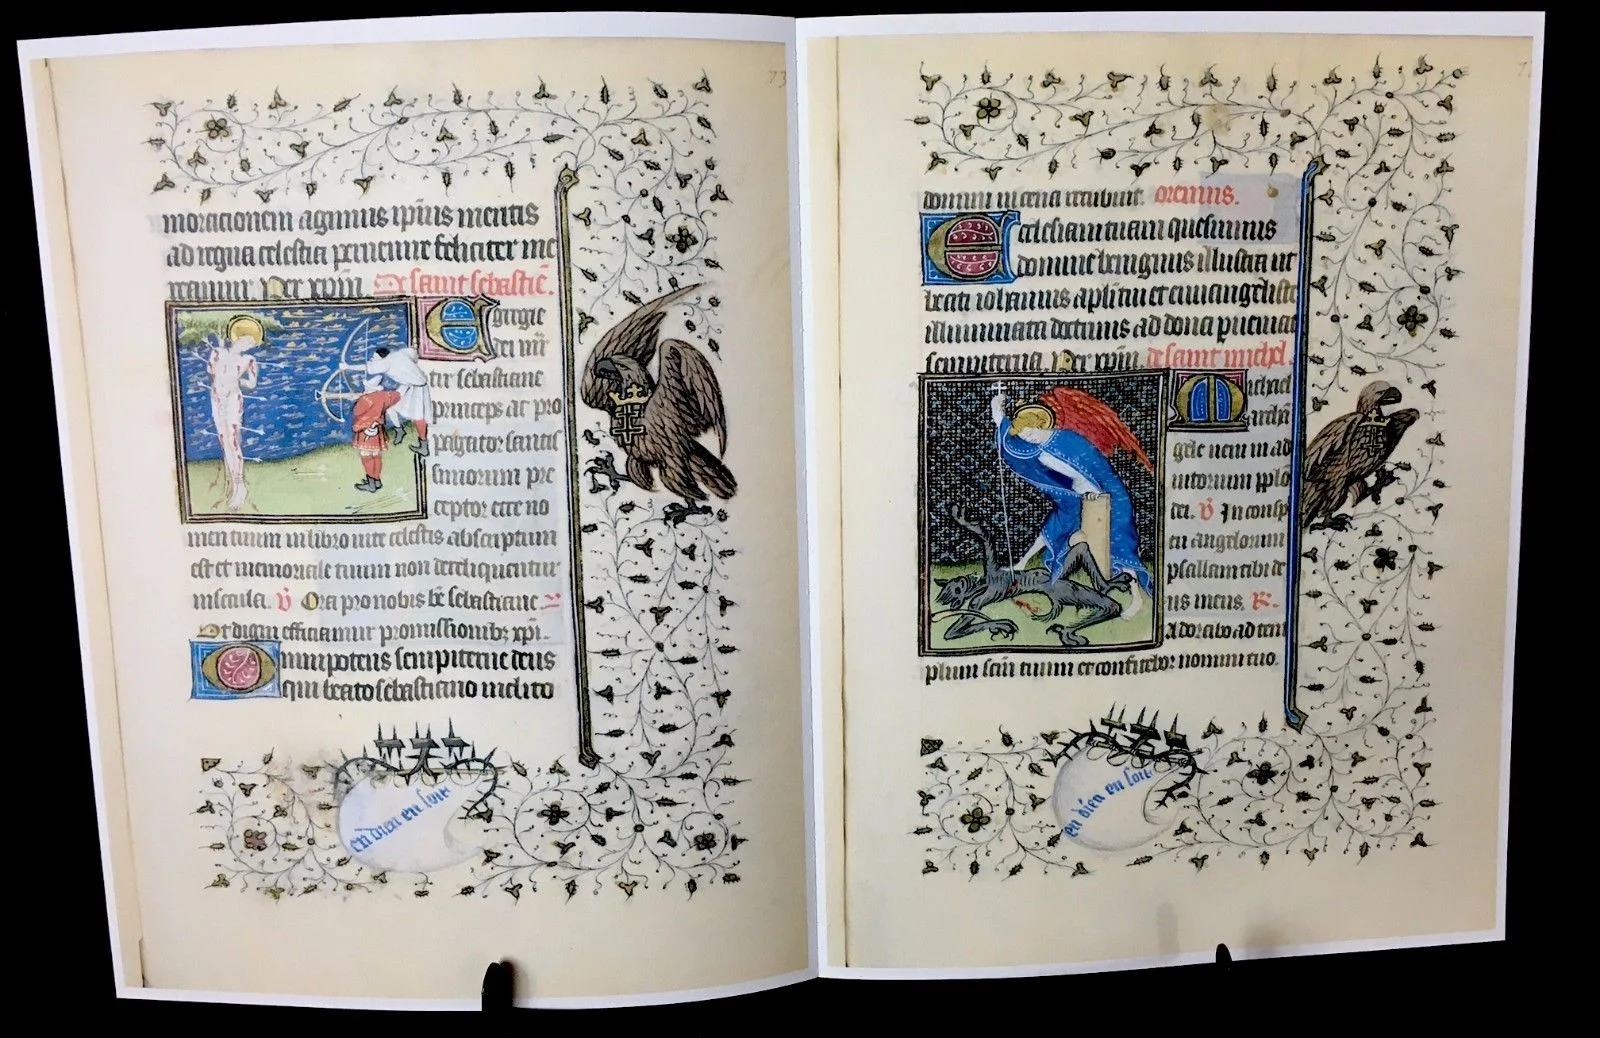 73
moracionem agimus ip̄ius meritis
ad regna celestia peruenire feliciter me
reamur. Per xp̄m. De saint sebastiē.
Egregie
dei mr̄
tir sebastiane
princeps ac pro
pagator sanctis
simorum pre
ceptor ecce no
men tuum in libro uite celestis abscriptum
est et memoriale tuum non derelinquentur
in secula. V̄ Ora pro nobis bē sebastiane
Vt digni efficiamur promissionibꝫ xp̄i.
Omnipotens sempiterne deus
qui beato sebastiano inclito
en dieu en soit
domini in cena recubuit. oremus.
Ecclesiam tuam quesumus
domine benignus illustra ut
beati iohannis ap̄li tui et euuangeliste
illuminata doctrinis ad dona perueniat
sempiterna. Per xp̄m. de saint michel.
Michael
archā
gele veni in ad
iutorium pplō
dei. V̄ In consp
ctu angelorum
psallam tibi de
us meus. R.
Adorabo ad tem
plum scm̄ tuum et confitebor nomini tuo.
en dieu en soit